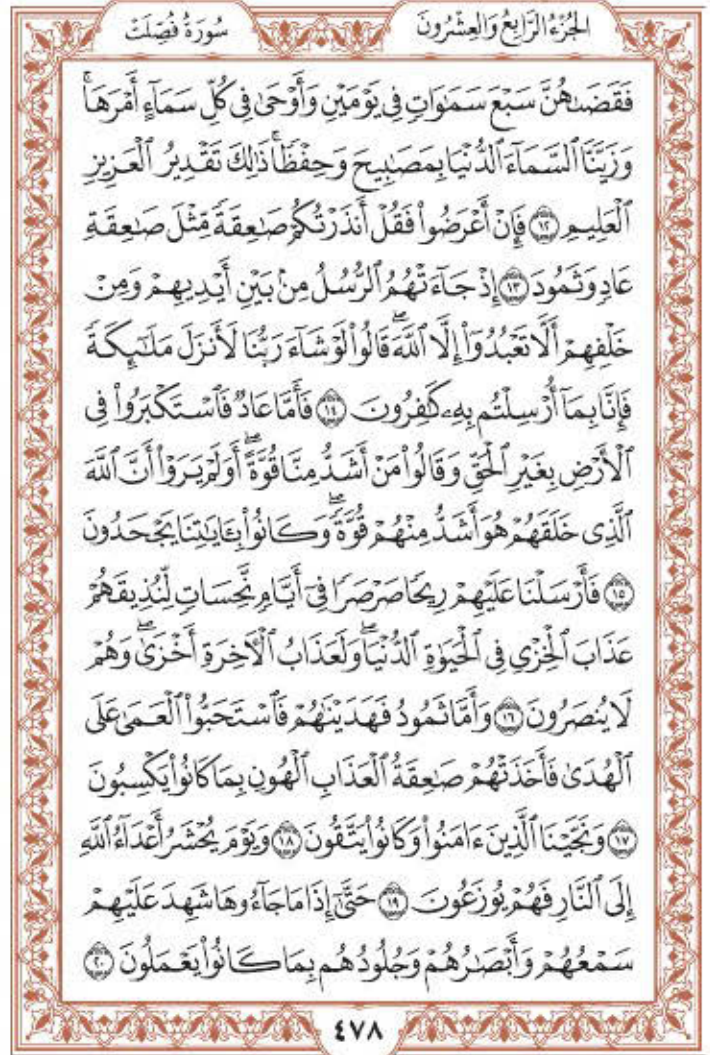 الجُزْءُ الرَّابِعُ وَالعِشْرُونَ
سُورَةُ فُصِّلَتْ
فَقَضَىٰهُنَّ سَبْعَ سَمَٰوَاتٍ فِي يَوْمَيْنِ وَأَوْحَىٰ فِي كُلِّ سَمَآءٍ أَمْرَهَاۚ
وَزَيَّنَّا ٱلسَّمَآءَ ٱلدُّنْيَا بِمَصَٰبِيحَ وَحِفْظٗاۚ ذَٰلِكَ تَقْدِيرُ ٱلْعَزِيزِ
ٱلْعَلِيمِ ١٢ فَإِنْ أَعْرَضُواْ فَقُلْ أَنذَرْتُكُمْ صَٰعِقَةٗ مِّثْلَ صَٰعِقَةِ
عَادٖ وَثَمُودَ ١٣ إِذْ جَآءَتْهُمُ ٱلرُّسُلُ مِنۢ بَيْنِ أَيْدِيهِمْ وَمِنْ
خَلْفِهِمْ أَلَّا تَعْبُدُوٓاْ إِلَّا ٱللَّهَۖ قَالُواْ لَوْ شَآءَ رَبُّنَا لَأَنزَلَ مَلَٰٓئِكَةٗ
فَإِنَّا بِمَآ أُرْسِلْتُم بِهِۦ كَٰفِرُونَ ١٤ فَأَمَّا عَادٞ فَٱسْتَكْبَرُواْ فِي
ٱلْأَرْضِ بِغَيْرِ ٱلْحَقِّ وَقَالُواْ مَنْ أَشَدُّ مِنَّا قُوَّةًۖ أَوَلَمْ يَرَوْاْ أَنَّ ٱللَّهَ
ٱلَّذِي خَلَقَهُمْ هُوَ أَشَدُّ مِنْهُمْ قُوَّةٗۖ وَكَانُواْ بِـَٔايَٰتِنَا يَجْحَدُونَ
١٥ فَأَرْسَلْنَا عَلَيْهِمْ رِيحٗا صَرْصَرٗا فِيٓ أَيَّامٖ نَّحِسَاتٖ لِّنُذِيقَهُمْ
عَذَابَ ٱلْخِزْيِ فِي ٱلْحَيَوٰةِ ٱلدُّنْيَاۖ وَلَعَذَابُ ٱلْأٓخِرَةِ أَخْزَىٰۖ وَهُمْ
لَا يُنصَرُونَ ١٦ وَأَمَّا ثَمُودُ فَهَدَيْنَٰهُمْ فَٱسْتَحَبُّواْ ٱلْعَمَىٰ عَلَى
ٱلْهُدَىٰ فَأَخَذَتْهُمْ صَٰعِقَةُ ٱلْعَذَابِ ٱلْهُونِ بِمَا كَانُواْ يَكْسِبُونَ
١٧ وَنَجَّيْنَا ٱلَّذِينَ ءَامَنُواْ وَكَانُواْ يَتَّقُونَ ١٨ وَيَوْمَ يُحْشَرُ أَعْدَآءُ ٱللَّهِ
إِلَى ٱلنَّارِ فَهُمْ يُوزَعُونَ ١٩ حَتَّىٰٓ إِذَا مَا جَآءُوهَا شَهِدَ عَلَيْهِمْ
سَمْعُهُمْ وَأَبْصَٰرُهُمْ وَجُلُودُهُم بِمَا كَانُواْ يَعْمَلُونَ ٢٠
٤٧٨